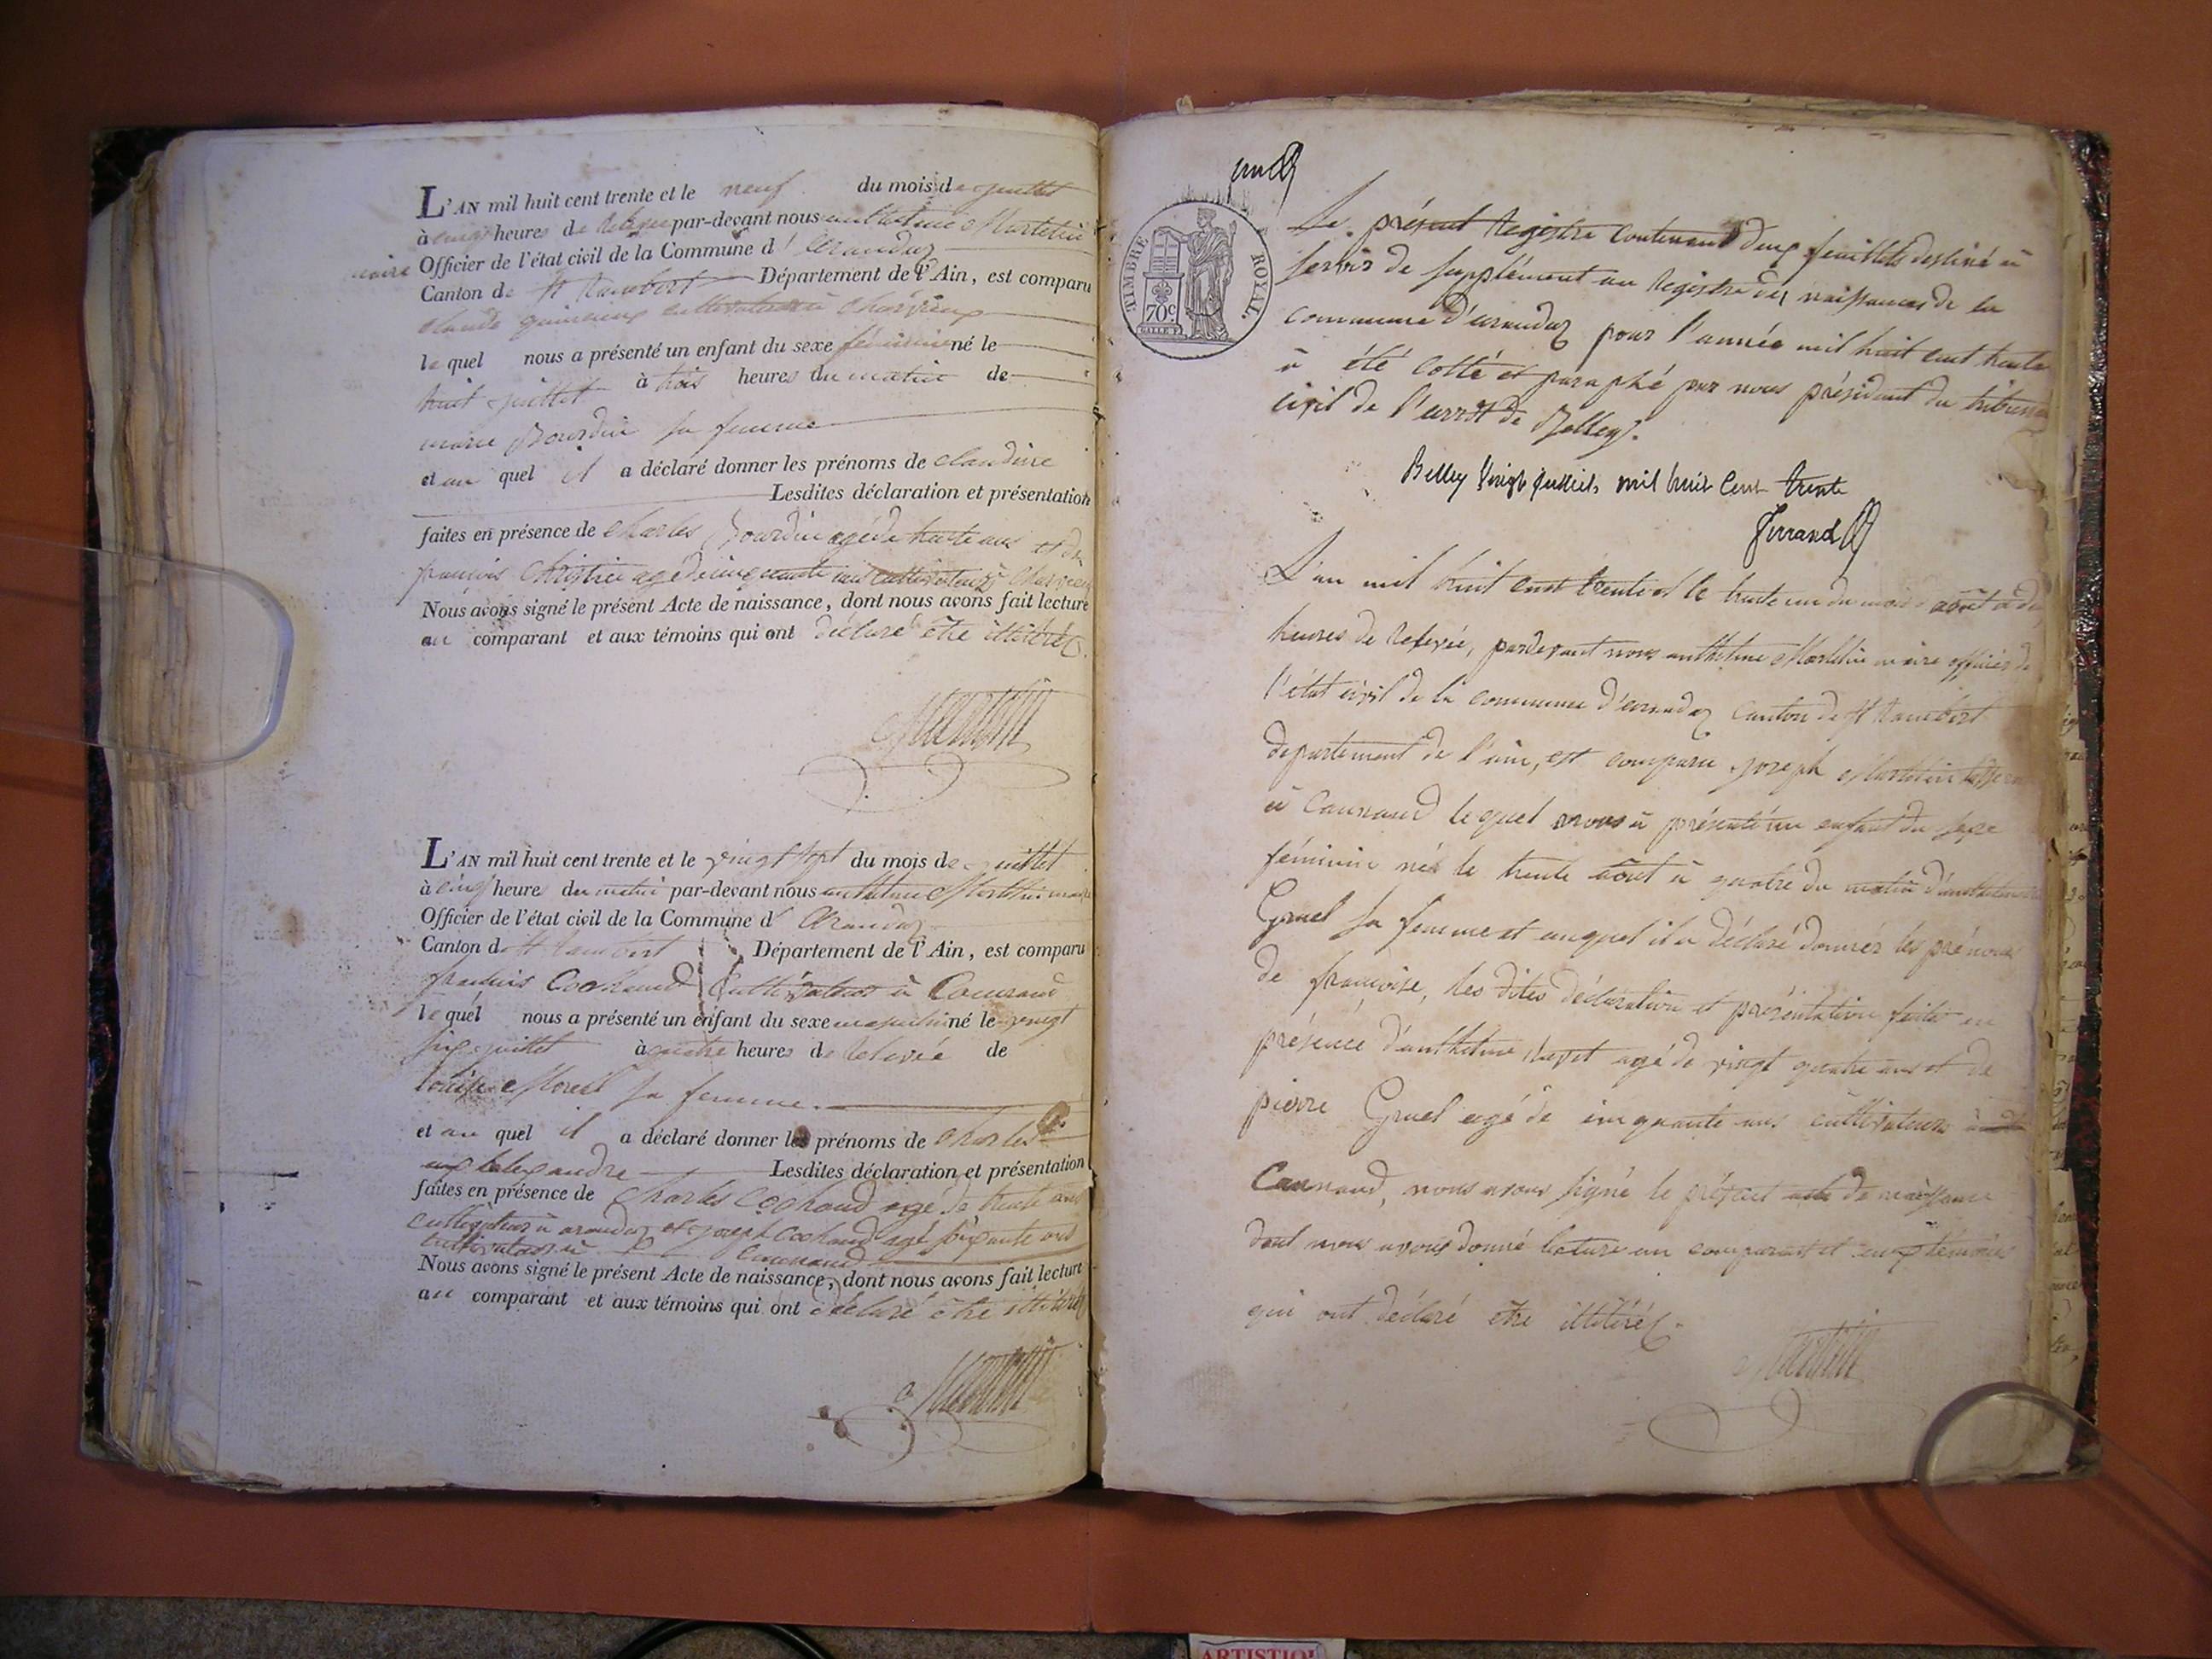 L'AN mil huit cent trente et le neuf du mois de juillet
à cinq heures de relevée par-devant nous anthelme Martelin
maire Officier de l'état civil de la Commune d' arandaz
Canton de St Rambert Département de l'Ain, est comparu
Claude cultivateur à
le quel nous a présenté un enfant du sexe féminin né le
huit juillet à trois heures du matin de
marie Bourdin sa femme
et au quel il a déclaré donner les prénoms de claudine
Lesdites déclaration et présentation
faites en présence de charles Bourdin agé de trente ans et de
françois agé de cinquante ans cultivateurs
Nous avons signé le présent Acte de naissance, dont nous avons fait lecture
au comparant et aux témoins qui ont déclaré être illitérés.
Martelin
L'AN mil huit cent trente et le vingt sept du mois de juillet
à cinq heures du matin par-devant nous anthelme Martelin maire
Officier de l'état civil de la Commune d' arandaz
Canton de St Rambert Département de l'Ain, est comparu
françois Cochaud Cultivateur à
le quel nous a présenté un enfant du sexe masculin né le vingt
six juillet à quatre heures de relevée de
sa femme.
et au quel il a déclaré donner les prénoms de charles
alexandre Lesdites déclaration et présentation
faites en présence de charles Cochaud agé de trente ans
cultivateur à arandaz et joseph Cochaud agé soixante ans
cultivateur à
Nous avons signé le présent Acte de naissance, dont nous avons fait lecture
au comparant et aux témoins qui ont déclaré être illitérés
Martelin
TIMBRE ROYAL
70c
Le présent Registre contenant deux feuillets destiné à
servir de supplément au Registre des naissances de la
commune d'arandaz pour l'année mil huit cent trente
à été cotté et paraphé par nous président du tribunal
civil de l'arrdt de Belley.
Belley vingt juillet mil huit cent trente
Ferrand
L'an mil huit cent trente et le trente un du mois août à
heures de relevée, pardevant nous anthelme Martelin maire officier de
l'état civil de la commune d'arandaz canton de St Rambert
departement de l'ain, est comparu joseph Martelin
à lequel nous à présenté un enfant du sexe
féminin né le trente août à quatre du matin d'anthelmette
Gruel sa femme et auquel il a déclaré donner les prénoms
de françoise, les dites déclaration et présentation faites en
présence d'anthelme agé de vingt quatre ans et de
pierre Gruel agé de cinquante ans cultivateurs à
nous avons signé le présent acte de naissance
dont nous avons donné lecture au comparant et aux témoins
qui ont déclaré etre illitérés.
Martelin
ARTISTIQ